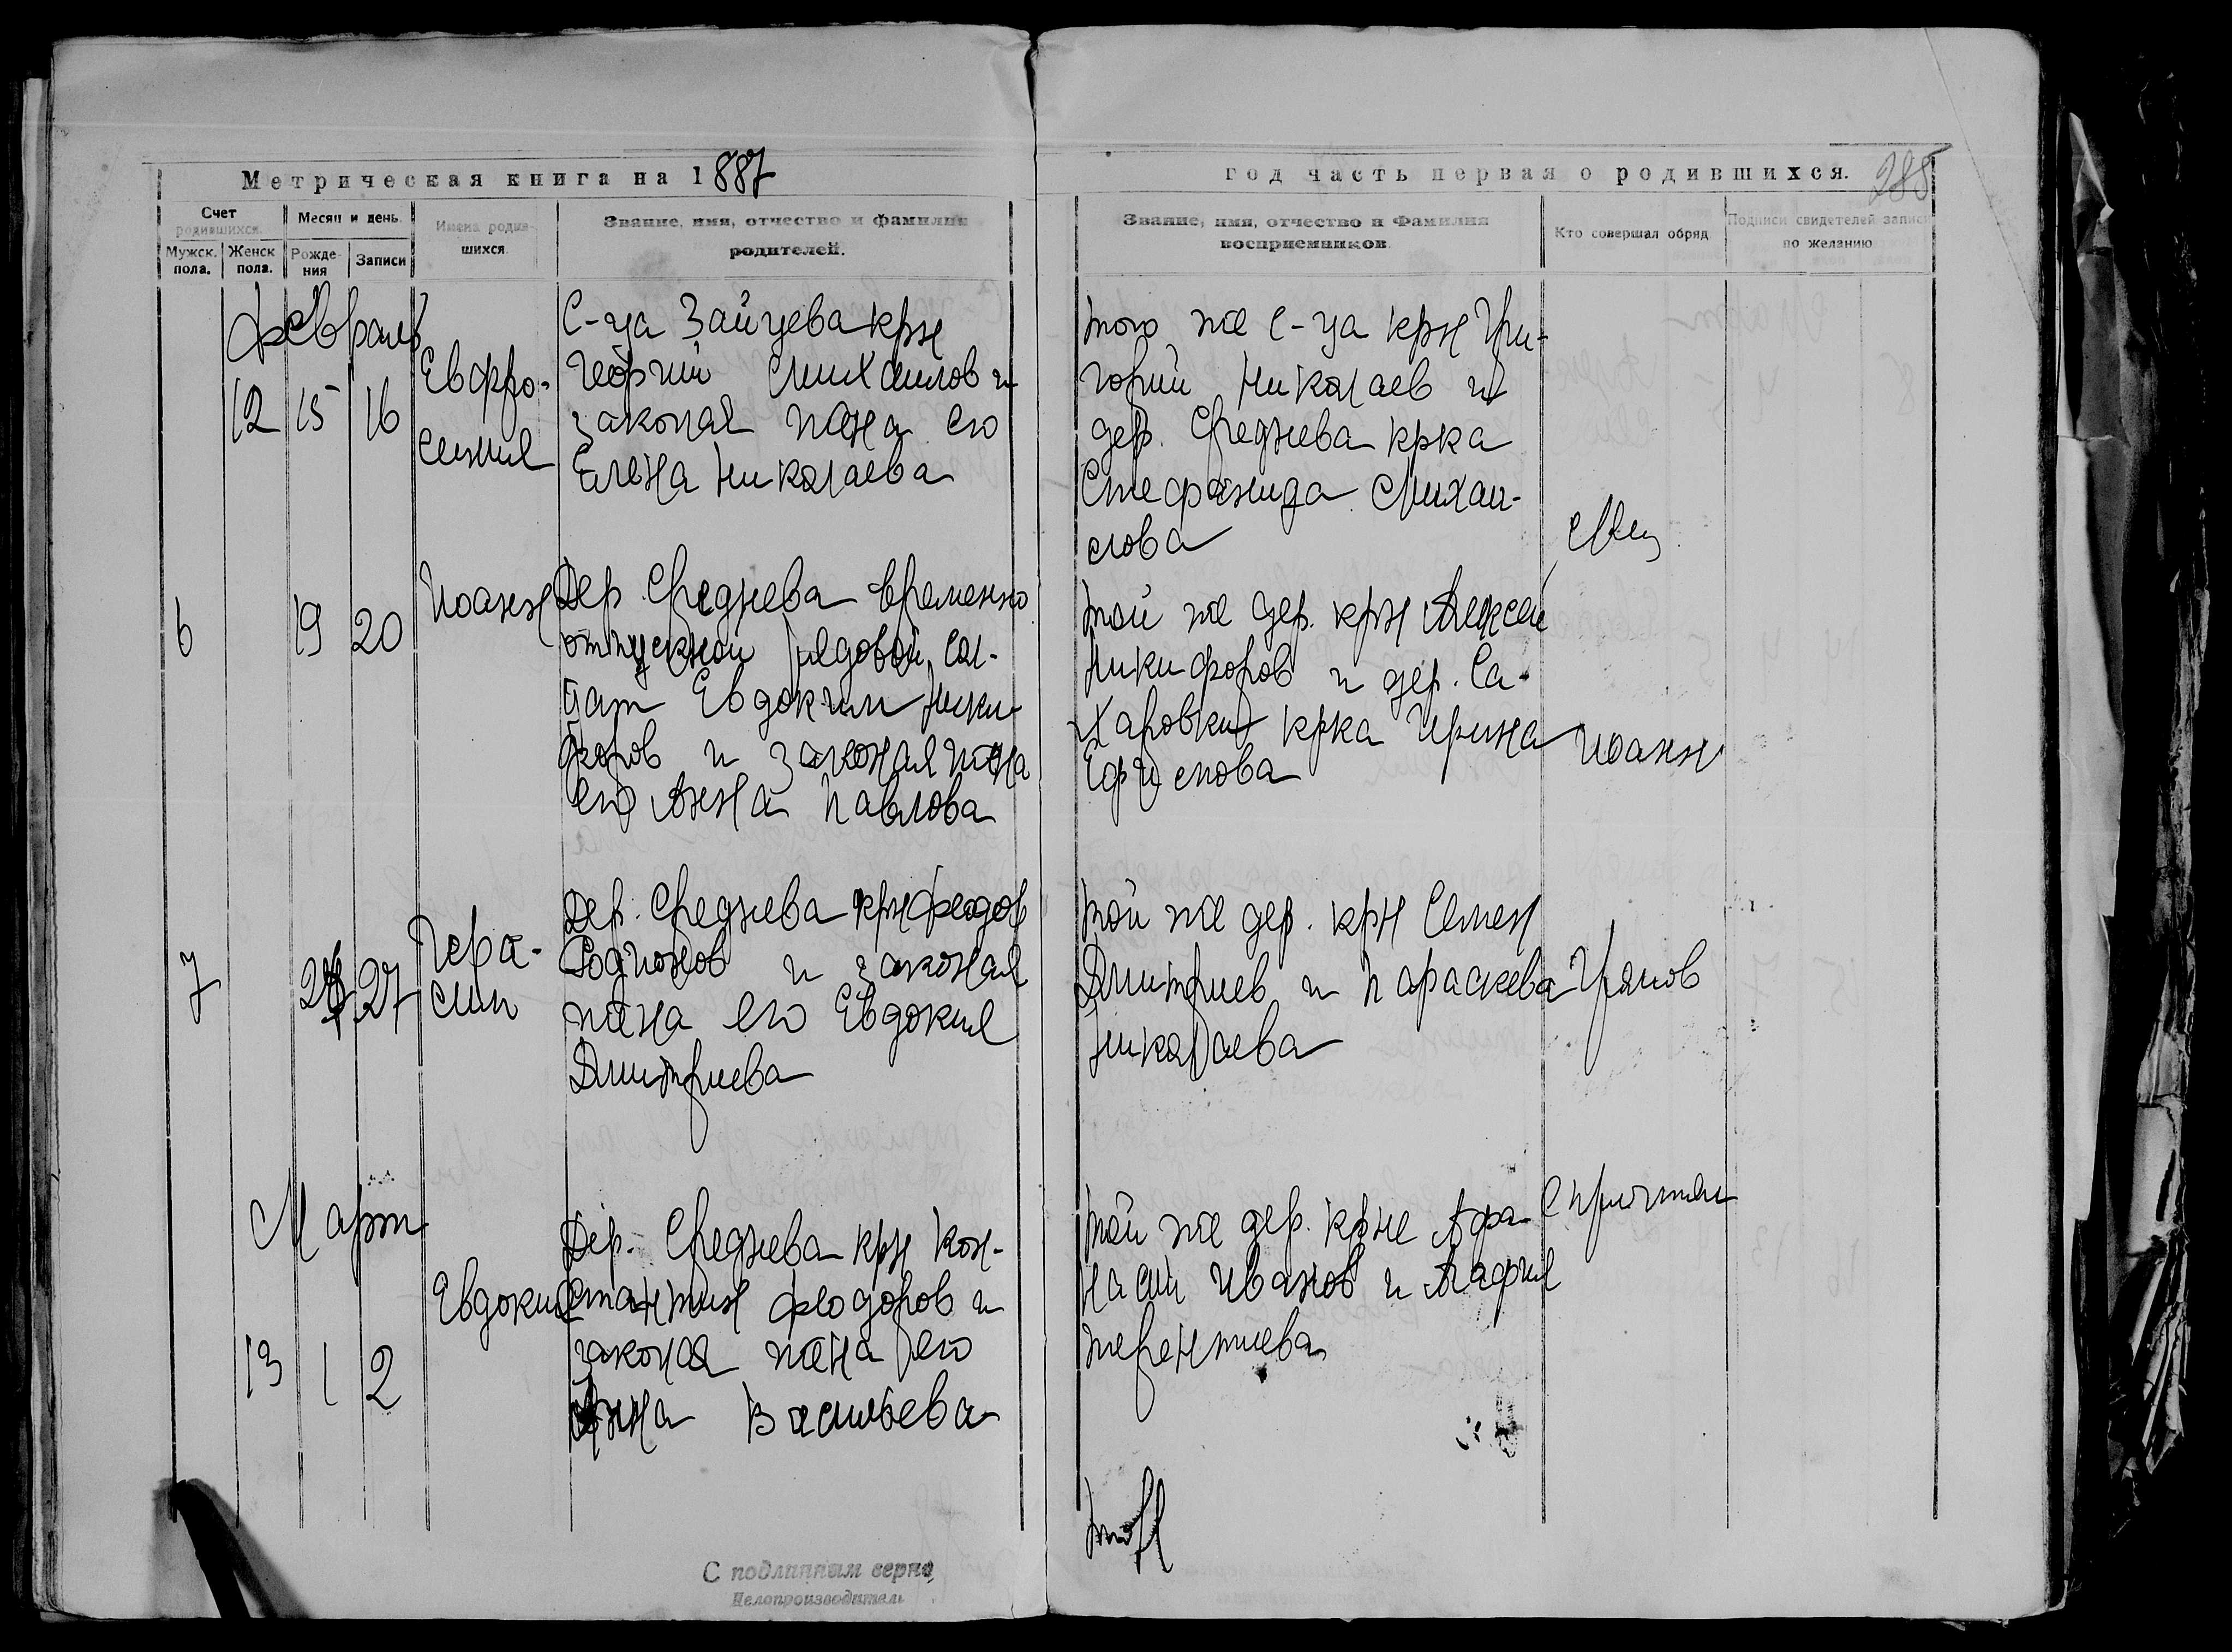 Метрическая книга на 1887
год часть первая о родившихся. 285
Счет родившихся.
Мужск. пола.
Женск пола.
Месяц и день.
Рожде-
ния
Записи
Имена родив-
шихся.
Звание, имя, отчество и фамилия
родителей.
Звание, имя, отчество и Фамилия
восприемников.
Кто совершал обряд.
Подписи свидетелей записи
по желанию
Февраль
12 15 16
Евфро-
синия
С-ца Зайцева крн
Георгий Михаилов и
законая жена его
Елена Николаева
того же с-ца крн Гри-
горий Николаев и
дер. Среднева крка
Стефанида Михаи-
лова
Свещ
6 19 20
Иоанн
Дер. Среднева временно
отпускной рядовой сол-
дат Евдоким Ники-
форов и законая жена
его Анна Павлова
той же дер. крн Алексей
Никифоров и дер. Са-
харовки крка Ирина
Ефимова
Иоанн
7 27
Гера-
сим
Дер. Среднева крн Феодов
Родионов и законая
жена его Евдокия
Дмитриева
той же дер. крн Семен
Дмитриев и Параскева
Николаева
Март
13 1 2
Евдокия
Дер. Среднева крн Кон-
стантин Феодоров и
законая жена его
Анна Васильева
той же дер. крне Афа-
насий Иванов и Агафия
Терентиева
С причтом
С подлинным верно,
Делопроизводитель